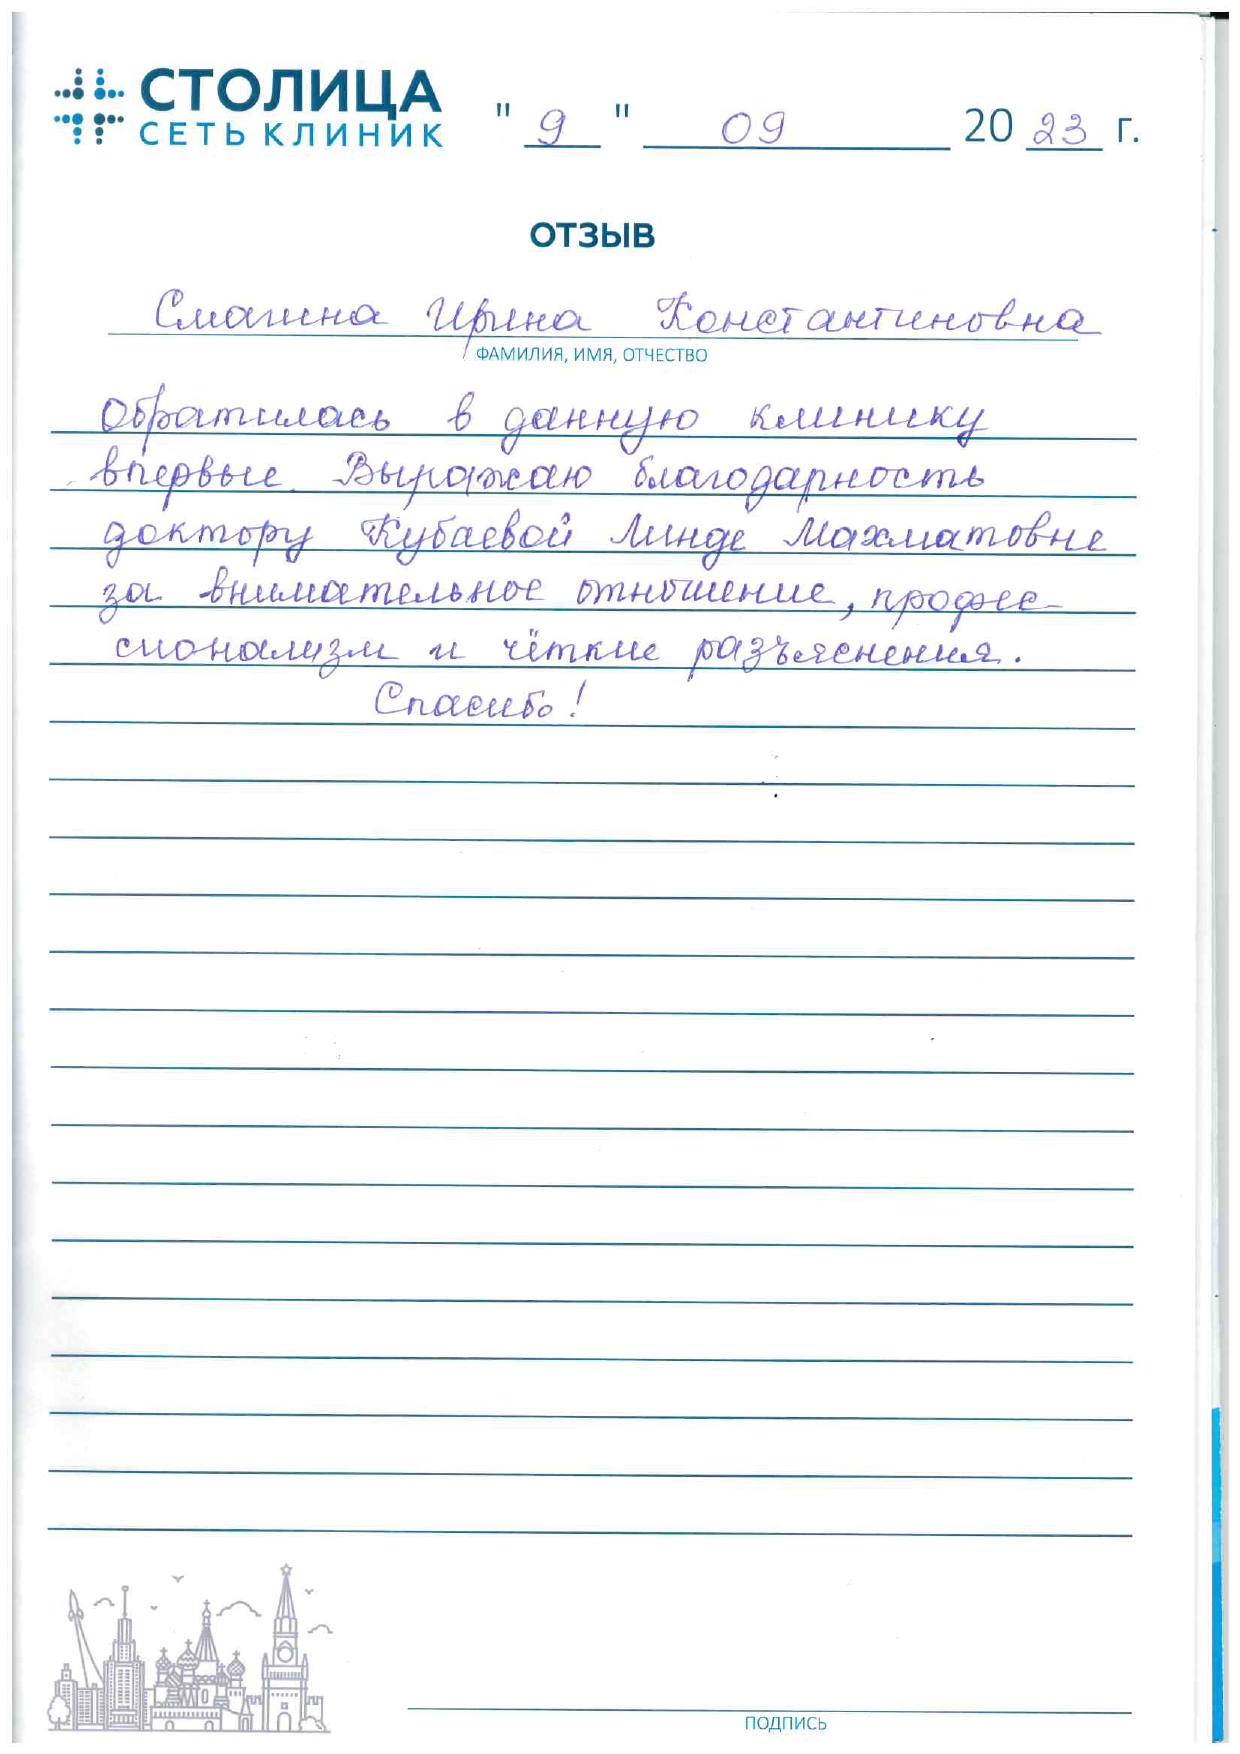 СТОЛИЦА
СЕТЬ КЛИНИК
"9" 09 2023 г.
ОТЗЫВ
Смагина Ирина Константиновна
ФАМИЛИЯ, ИМЯ, ОТЧЕСТВО
Обратилась в данную клинику
впервые. Выражаю благодарность
доктору Кубаевой Линде Махматовне
за внимательное отношение, профес-
сионализм и чёткие разъяснения.
Спасибо!
ПОДПИСЬ